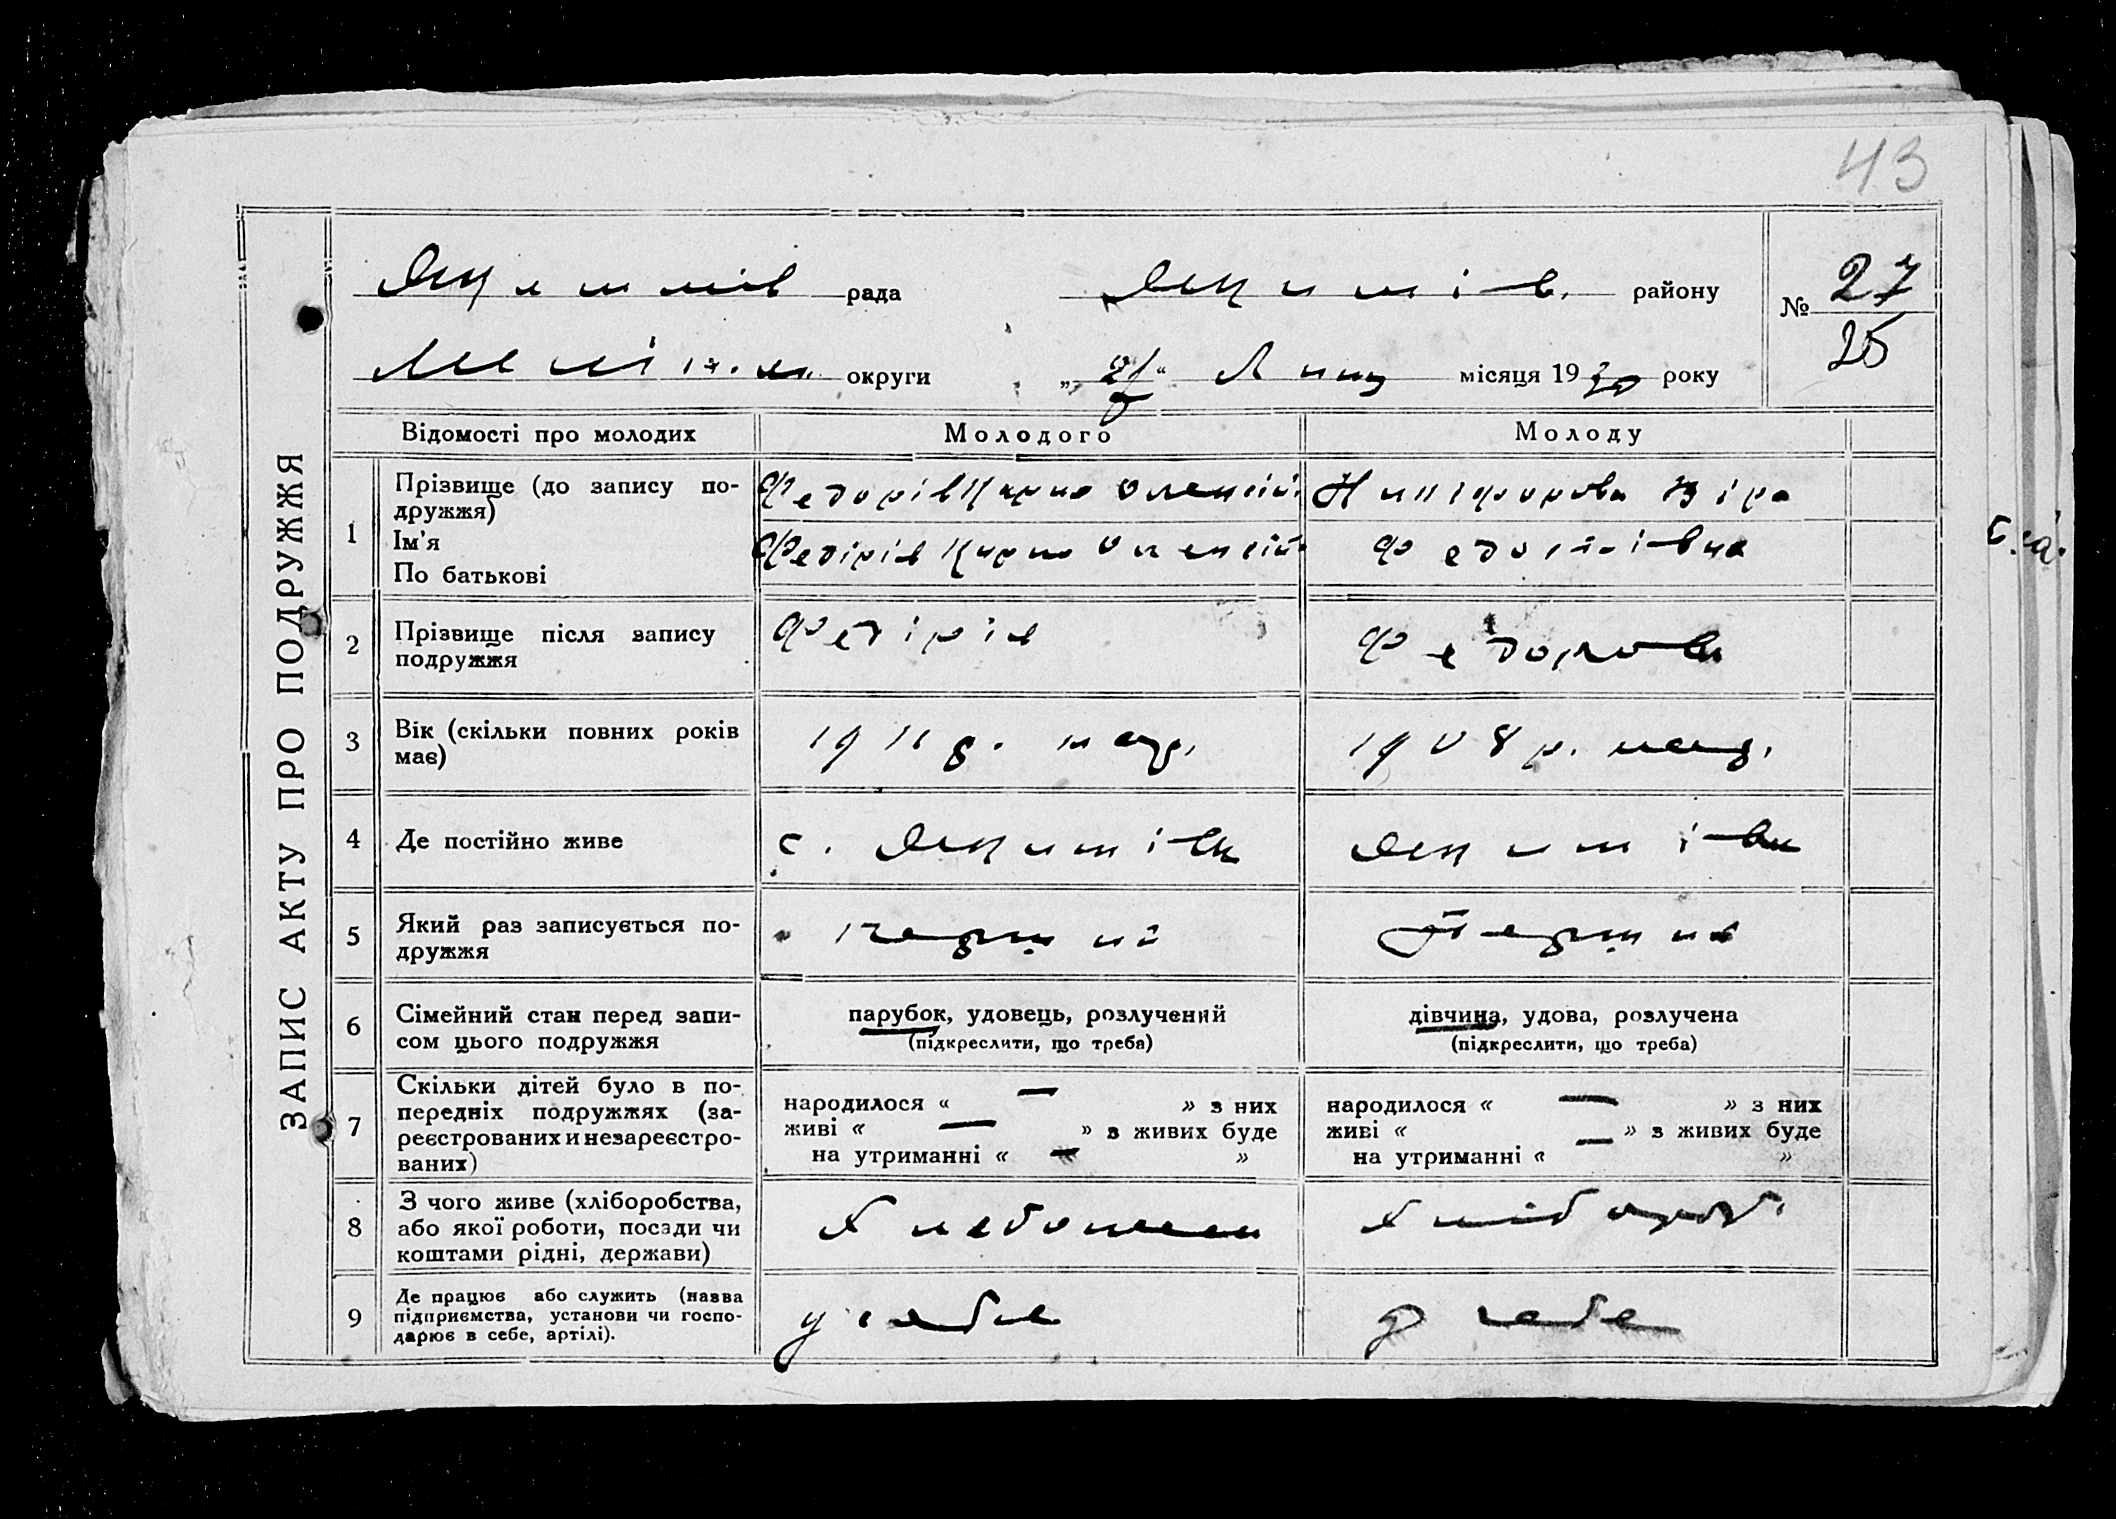 43
Якимів рада Якимів. району № 27
25
Меліт. округи „ 27 “ Липц місяця 1930 року
ЗАПИС АКТУ ПРО ПОДРУЖЖЯ
Відомості про молодих Молодого Молоду
1 Прізвище (до запису по-
дружжя)
Ім'я
По батькові
Федорів Карпо Олексій. Никіфорова Віра
Федірів Карпо Олексій.
2 Прізвище після запису
подружжя
Федірів Федорова
3 Вік (скільки повних років
має)
1911 р. нар. 1908 р. нар.
4 Де постійно живе с. Якимівка Якимівка
5 Який раз записується по-
дружжя
Перший Перший
6 Сімейний стан перед запи-
сом цього подружжя
парубок, удовець, розлучений
(підкреслити, що треба)
дівчина, удова, розлучена
(підкреслити, що треба)
7 Скільки дітей було в по-
передніх подружжях (за-
реєстрованих и незареєстро-
ваних)
народилося « — » з них
живі « — » з живих буде
на утриманні « — »
народилося « — » з них
живі « — » з живих буде
на утриманні « — »
8 З чого живе (хліборобства,
або якої роботи, посади чи
коштами рідні, держави)
Хлібороб.
9 Де працює або служить (назва
підприємства, установи чи госпо-
дарює в себе, артілі).
у себе у себе